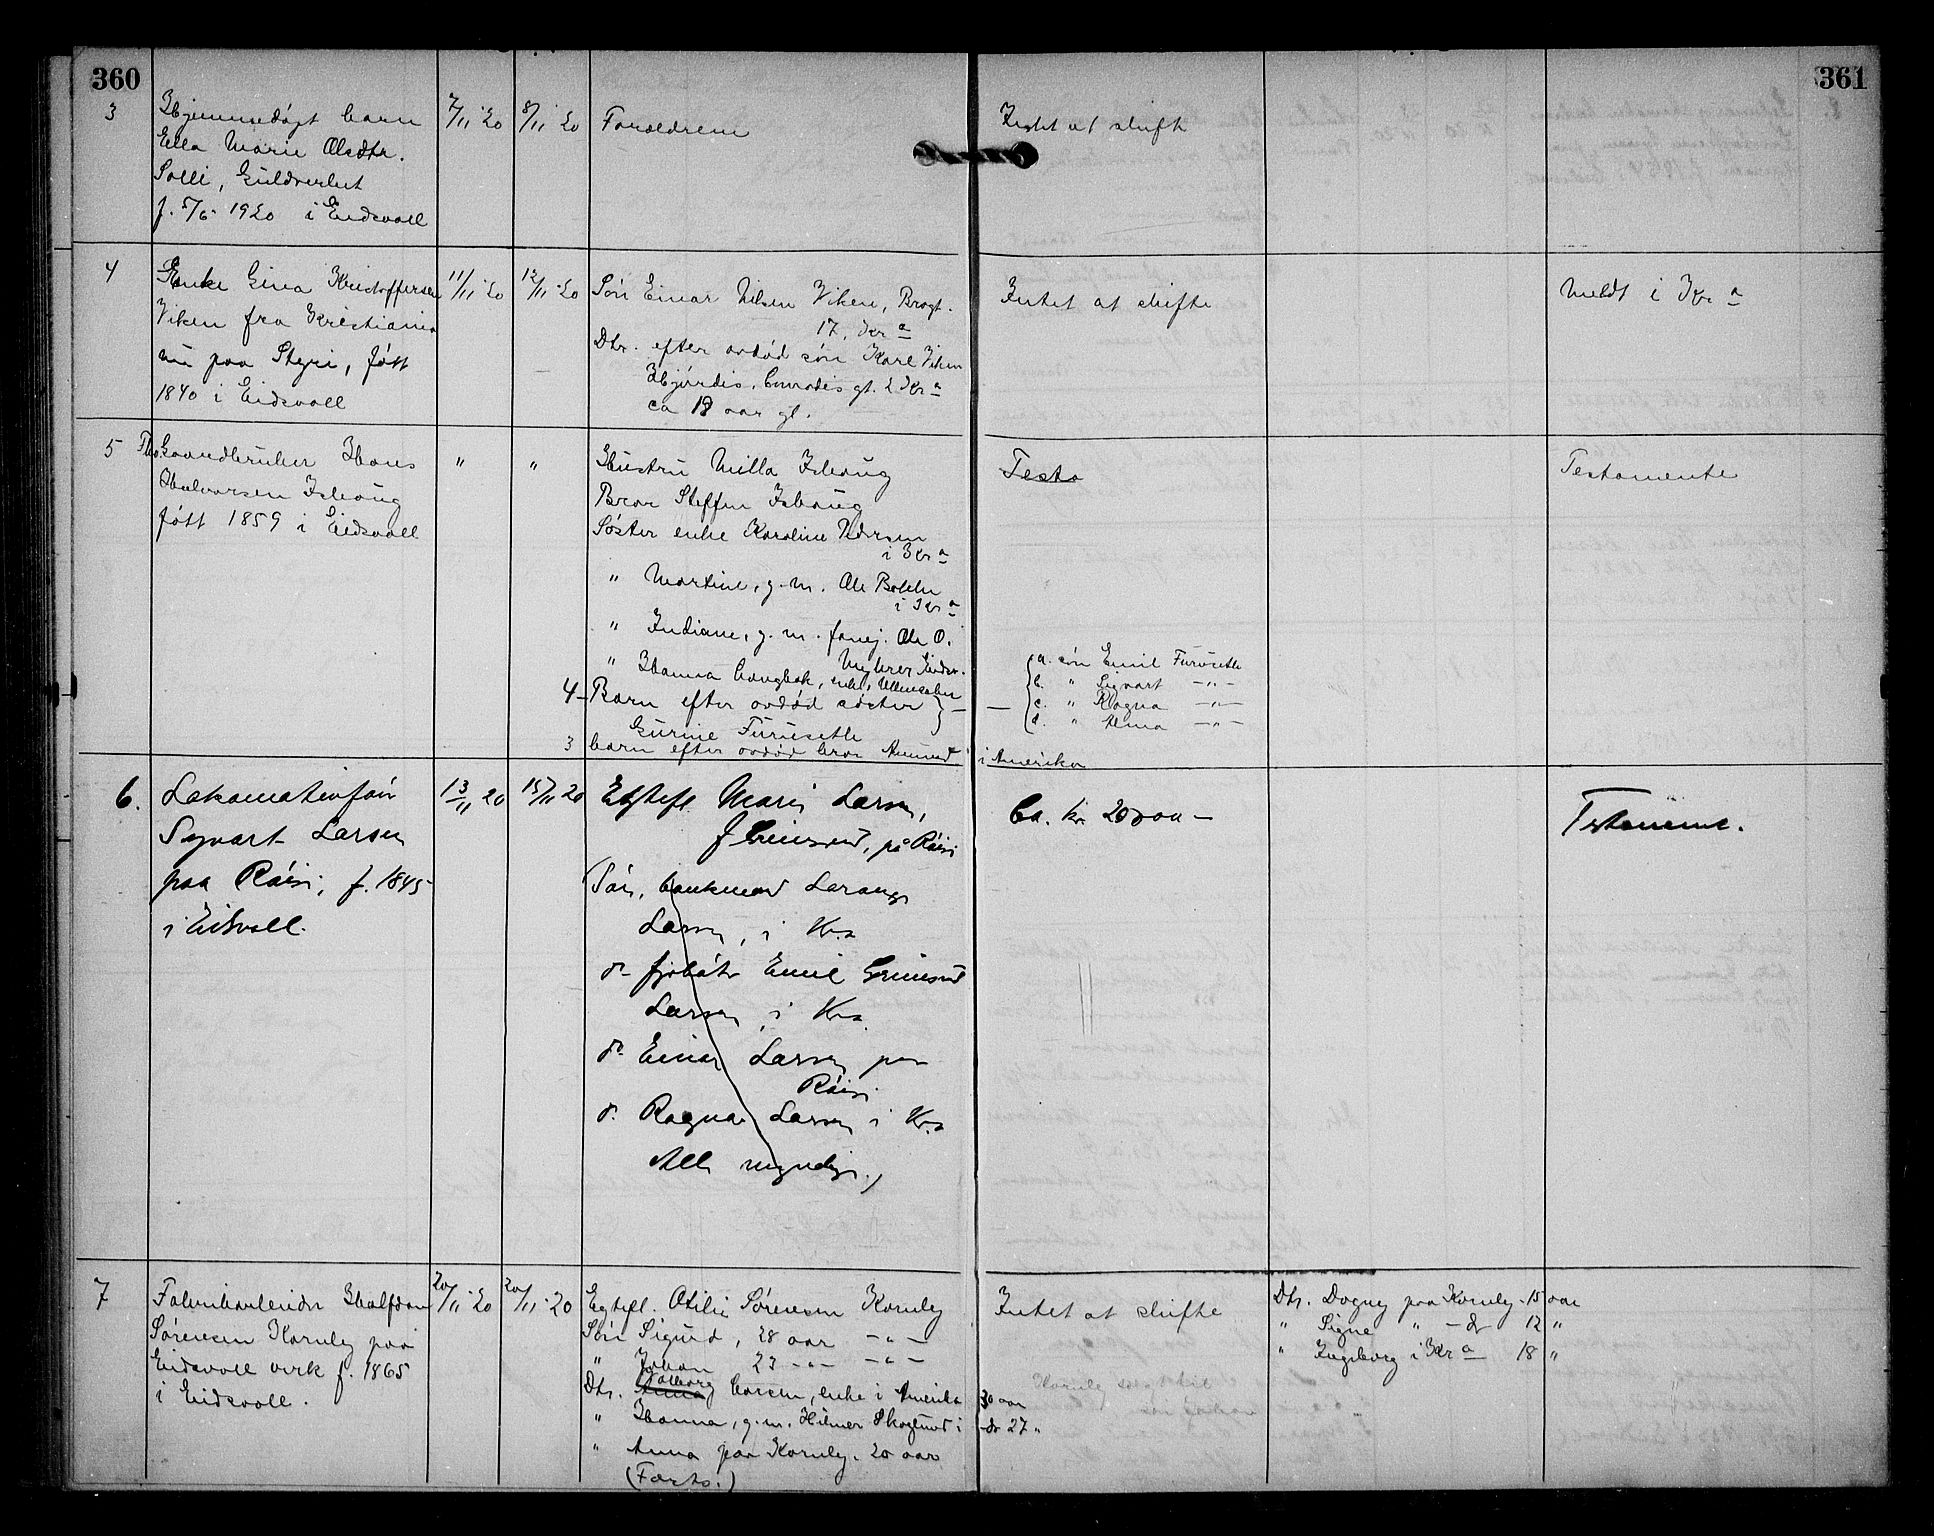 360
361
3
Hjemmedøpt barn
Ella Marie Olsdtr.
Solli, Guldverket
f. 5/6 1920 i Eidsvoll
7/11-20
8/11-20
Forældrene
Intet at skifte
4
Enke Gina Kristoffersen
Viken fra Kristiania
nu paa Styri, født
1840 i Eidsvoll
11/11-20
12/11-20
Søn Einar Nilsen Viken, Brogt.
17, Kr a
Dtr. efter avdød søn Karl Viken
Hjørdis, gt. 2 Kr a
ca 18 aar gl.
Intet at skifte
Meldt i Kr a
5
Fhv. Gaardbruker Hans
Halvorsen Ishoug
født 1859 i Eidsvoll
"
"
Hustru Milla Ishoug
Bror Steffen Ishoug
Søster enke Karoline Pedersen
i Kr a
" Martine, g.m. Ole
i Kr a
" Indiane, g.m. Ole O.
Myhrer
" Hanna enke, Ullensaker
4 - Barn efter avdød søster } -
Gurine Furuseth
3 barn efter avdød bror Amund
Testa
- a. søn Emil Furuseth
b. " Sigvart - " -
c. " Ragna - " -
d. " Alma - " -
i Amerika
Testamente
6.
Lokomotivfør
Sigvart Larsen
paa Råsi, f. 1845
i Eidsvoll.
13/11 20
15/11 20
Egtefl. Marie Larsen,
f. Grimsrud, på Råsi
Søn, Larsen
Larsen, i Kr.a
do. Emil Grimsrud
Larsen, i Kr.a
do. Einar Larsen paa
Råsi
do. Ragna Larsen i Kr.a
Alle myndige.)
Ca. kr. 20000 -
Testamente.
7
Fabrikarbeider Halfdan
Sørensen Kornby paa
Eidsvoll verk f. 1865
i Eidsvoll.
20/11-20
20/11-20
Egtefl. Otilie Sørensen Kornby
Søn Sigurd, 28 aar - " -
" Johan 23 - " - - " -
Valborg
Dtr. Anna Larsen, enke i Amerika
30 aar
" Hanna, g.m. Hilmer Skoglund i
do 27 "
" Anna paa Kornby. 20 aar
(Forts.)
Intet at skifte
Dtr. Dagny paa Kornby 15 aar
" Signe " - do 12 "
" Ingeborg i Kr a 18 "